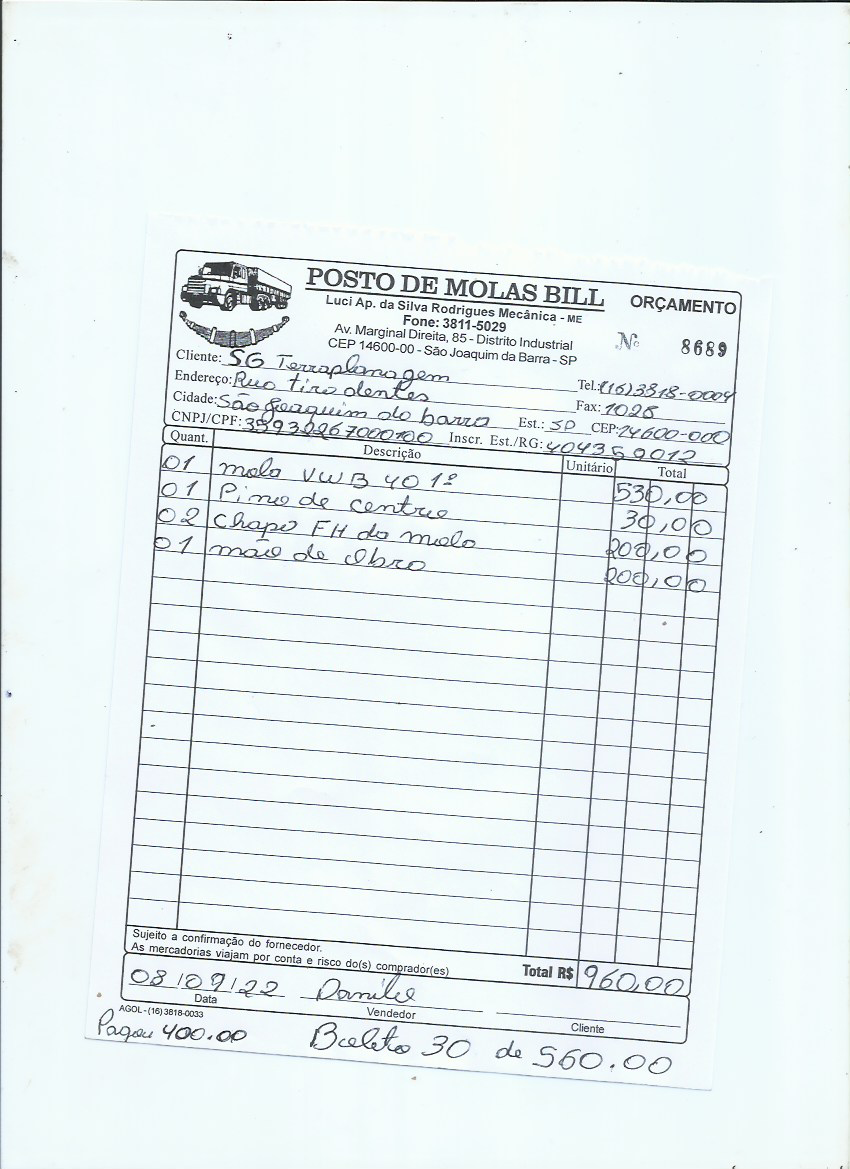 POSTO DE MOLAS BILL
ORÇAMENTO
Luci Ap. da Silva Rodrigues Mecânica - ME
Fone: 3811-5029
Av. Marginal Direita, 85 - Distrito Industrial
CEP 14600-00 - São Joaquim da Barra - SP
Nº 8689
Cliente: SG Terraplanagem
Endereço: Rua tiradentes Tel.: (16)3818-0004
Cidade: São Joaquim da barra Fax: 1028
Est.: SP CEP: 14600-000
CNPJ/CPF: Inscr. Est./RG: 404359012
Quant. Descrição Unitário Total
01 mola VWB 40 1º 530,00
01 Pino de centro 30,00
02 chapa FH da mola 200,00
01 mão de obra 200,00
Sujeito a confirmação do fornecedor.
As mercadorias viajam por conta e risco do(s) comprador(es)
Total R$ 960,00
08/09/22 Danilo
Data Vendedor Cliente
AGOL - (16) 3818-0033
Pagou 400.00 Boleto 30 de 560.00